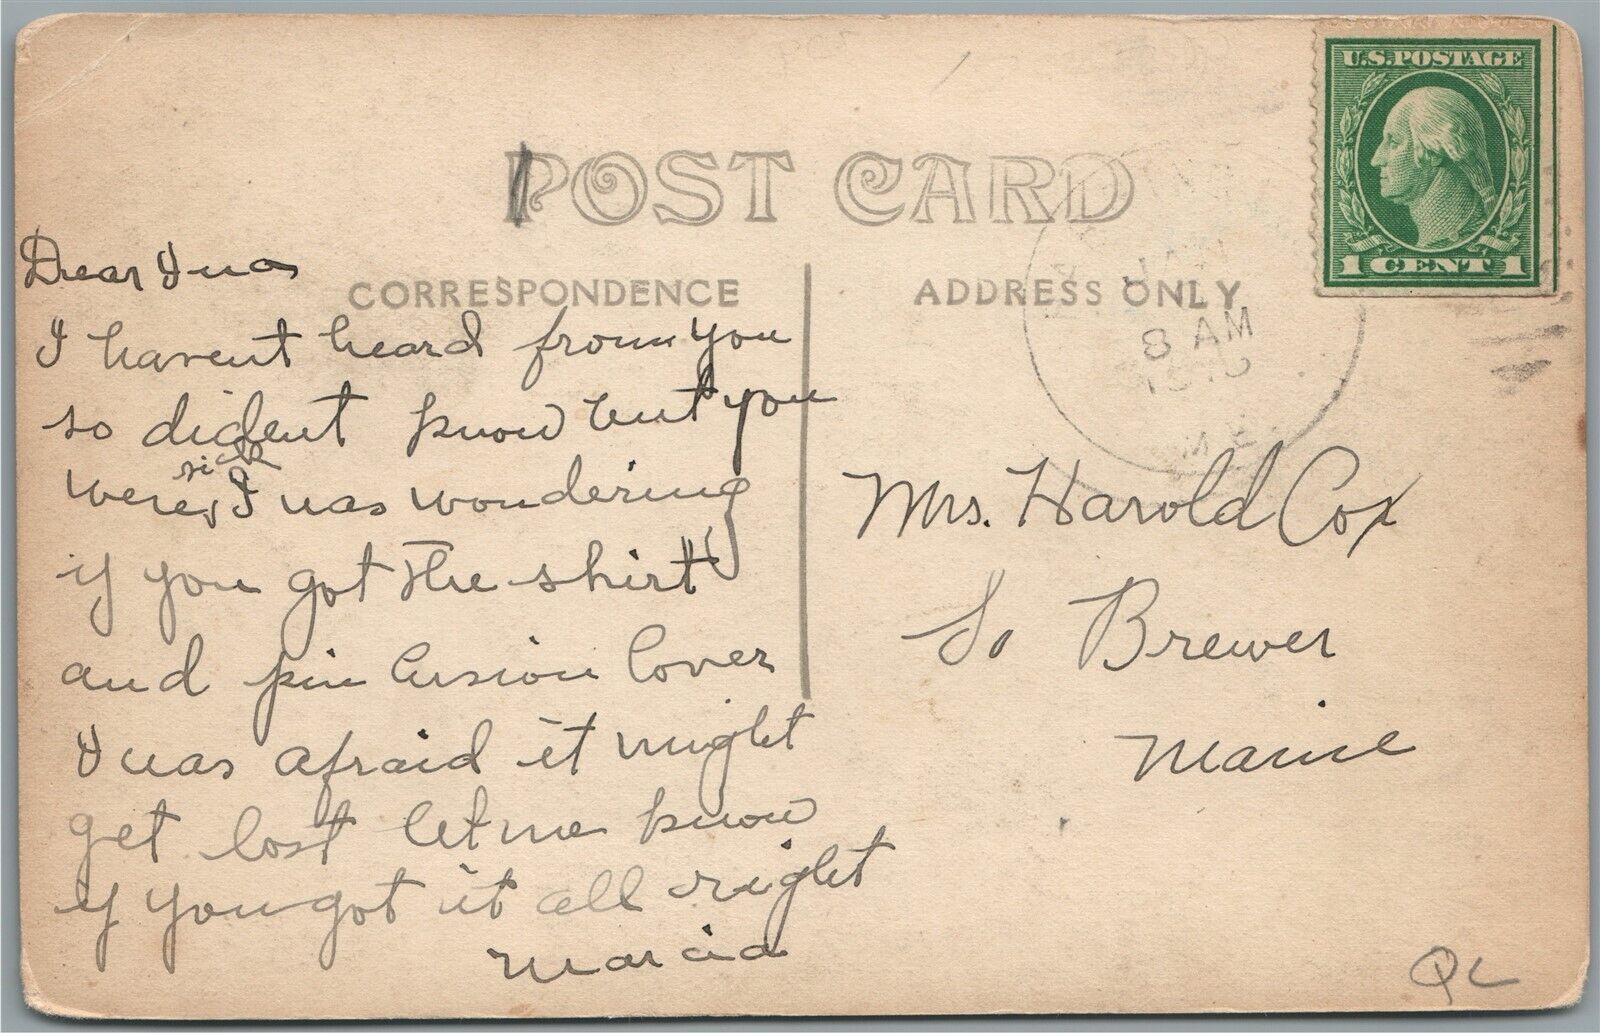 U.S. POSTAGE
1 CENT 1
POST CARD
CORRESPONDENCE
ADDRESS ONLY
JAN
8 AM
ME.
Dear Inas
I havent heard from you
so dident know but you
were sick I was wondering
if you got the shirt
and pin cusion cover
I was afraid it might
get lost let me know
if you got it all right
Marcia
Mrs. Harold Cox
So Brewer
Maine
QL